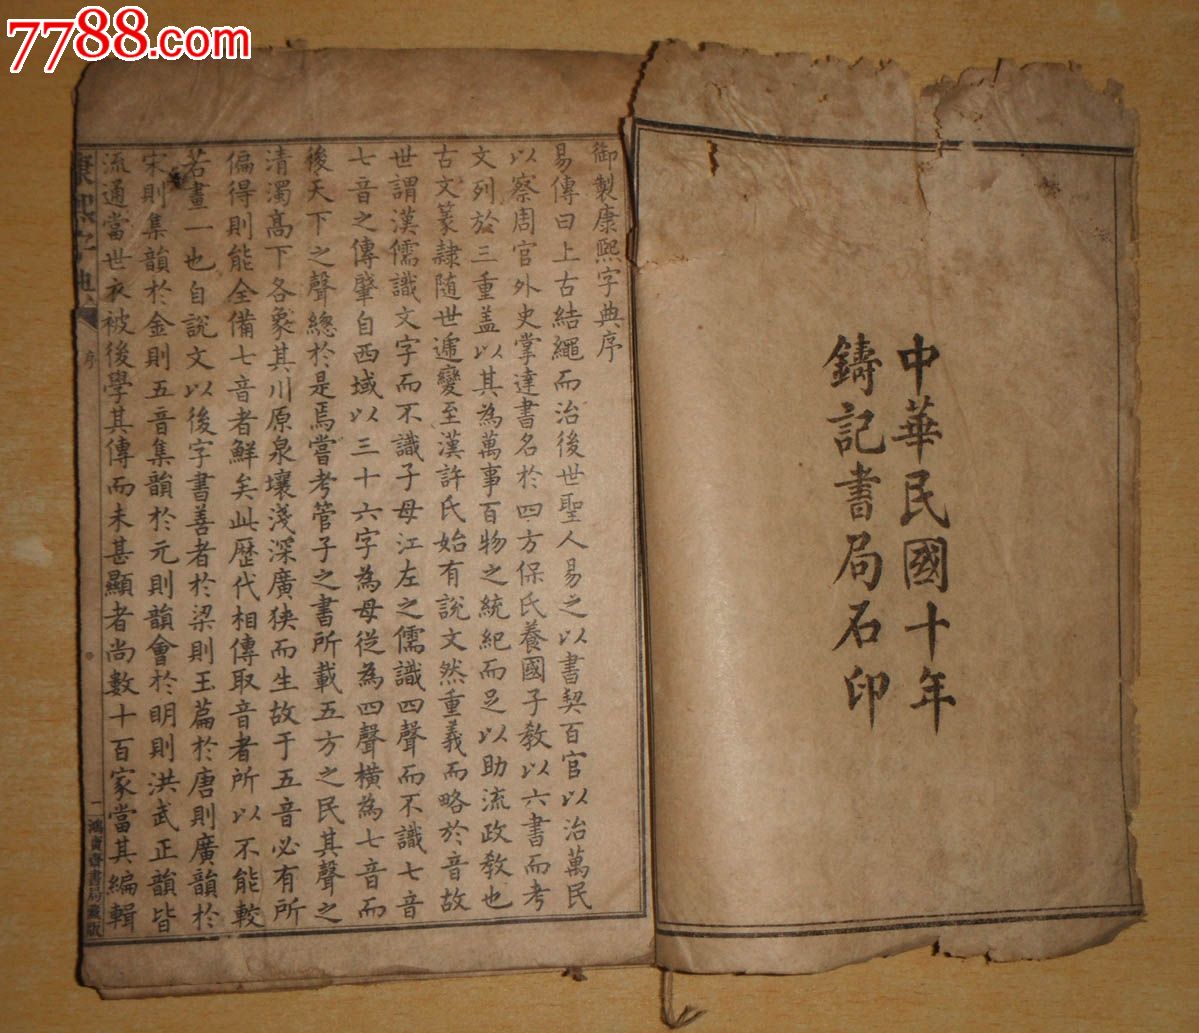 7788.com
中華民國十年
鑄記書局石印
御製康熙字典序
易傳曰上古結繩而治後世聖人易之以書契百官以治萬民
以察周官外史掌達書名於四方保氏養國子教以六書而考
文列於三重蓋以其為萬事百物之統紀而足以助流政教也
古文篆隷随世遞變至漢許氏始有說文然重義而略於音故
世謂漢儒識文字而不識子母江左之儒識四聲而不識七音
七音之傳肇自西域以三十六字為母從為四聲橫為七音而
後天下之聲總於是焉嘗考管子之書所載五方之民其聲之
清濁高下各象其川原泉壤淺深廣狹而生故于五音必有所
偏得則能全備七音者鮮矣此歷代相傳取音者所以不能較
若畫一也自說文以後字書善者於梁則玉篇於唐則廣韻於
宋則集韻於金則五音集韻於元則韻會於明則洪武正韻皆
流通當世衣被後學其傳而未甚顯者尚數十百家當其編輯
康熙字典
序
二
鴻寶齋書局藏版